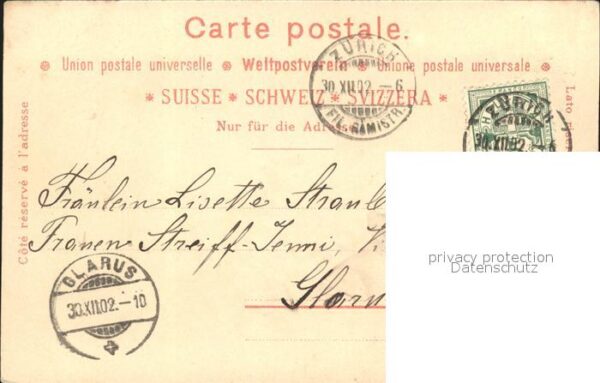 Carte postale.
Union postale universelle Weltpostverein Unione postale universale
* SUISSE * SCHWEIZ * SVIZZERA *
Nur für die Adresse
Côté réservé à l'adresse
Lato
ZÜRICH
30.XII.02.–6
FIL. BAHNHSTR.
ZÜRICH
30.XII.02.–6
Fräulein Lisette
Frauen Streiff-Jenni,
Glarus
GLARUS
30.XII.02.–10
privacy protection
Datenschutz